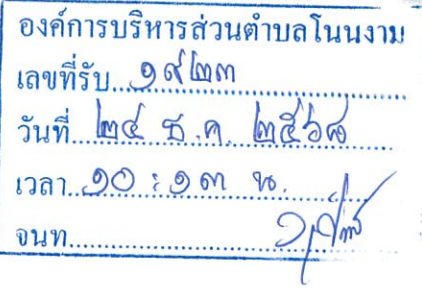 องค์การบริหารส่วนตำบลโนนงาม
เลขที่รับ ๑๙๒๓
วันที่ ๒๔ ธ.ค. ๒๕๖๘
เวลา ๑๐:๑๓ น.
จนท.